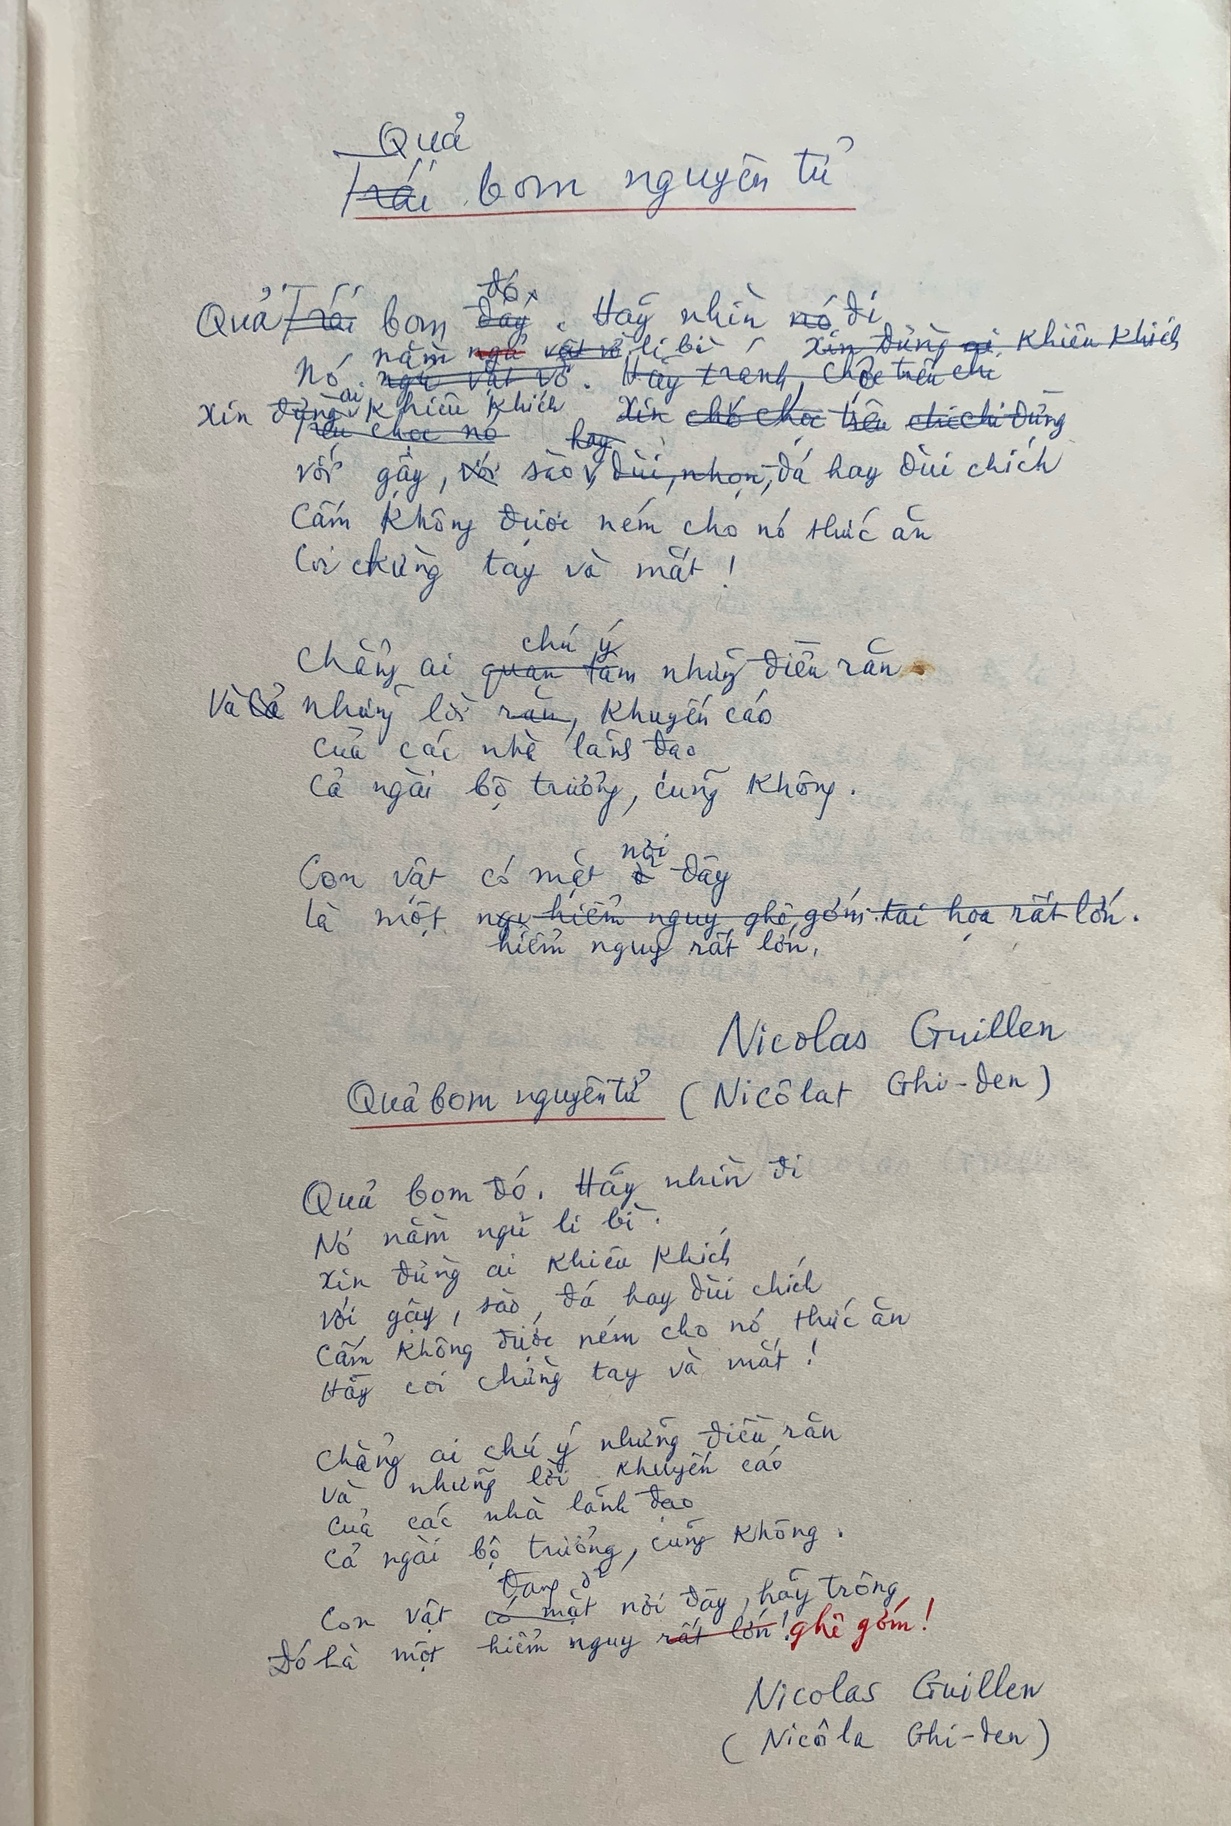 Quả
Trái bom nguyên tử
đó
Quả Trái bom đấy. Hãy nhìn nó đi
nằm ngủ vật vờ li bì, xin đừng ai khiêu khích
Nó ngủ vật vờ. Hãy tránh, chớ trêu chi
ai
Xin đừng khiêu khích Xin chớ chọc trêu chi chi đừng
Trêu chọc nó
hay
với gậy, với sào, dùi, nhọn, đá hay dùi chích
Cấm không được ném cho nó thức ăn
Coi chừng tay và mắt!
chú ý
Chẳng ai quan tâm những điều răn
Và Cả những lời răn, khuyến cáo
của các nhà lãnh đạo
Cả ngài bộ trưởng, cũng không.
nơi
Con vật có mặt ở đây
là một nguy hiểm nguy ghê gớm tai họa rất lớn.
hiểm nguy rất lớn.
Nicolas Guillen
Quả bom nguyên tử (Nicôlat Ghi-đen)
Quả bom đó. Hãy nhìn đi
Nó nằm ngủ li bì.
Xin đừng ai khiêu khích
Với gậy, sào, đá hay dùi chích
Cấm không được ném cho nó thức ăn
Hãy coi chừng tay và mắt!
Chẳng ai chú ý những điều răn
Và những lời khuyến cáo
Của các nhà lãnh đạo
Cả ngài bộ trưởng, cũng không.
Đang ở
Con vật có mặt nơi đây, hãy trông
Đó là một hiểm nguy rất lớn! ghê gớm!
Nicolas Guillen
(Nicôla Ghi-đen)